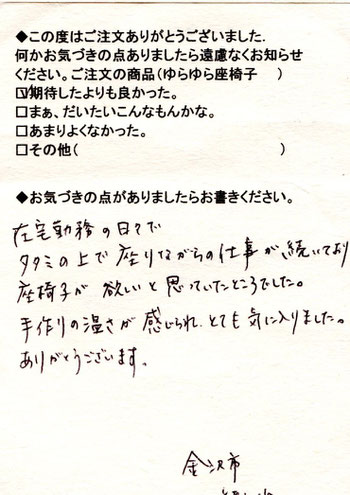 ◆この度はご注文ありがとうございました.
何かお気づきの点ありましたら遠慮なくお知らせ
ください。ご注文の商品(ゆらゆら座椅子　　)
☑期待したよりも良かった。
□まぁ、だいたいこんなもんかな。
□あまりよくなかった。
□その他(　　　　　　　　　　　　　　　　)
◆お気づきの点がありましたらお書きください。
在宅勤務の日々で
タタミの上で座りながらの仕事が、続いており
座椅子が欲しいと思っていたところでした。
手作りの温さが感じられ、とても気に入りました。
ありがとうございます。
金沢市